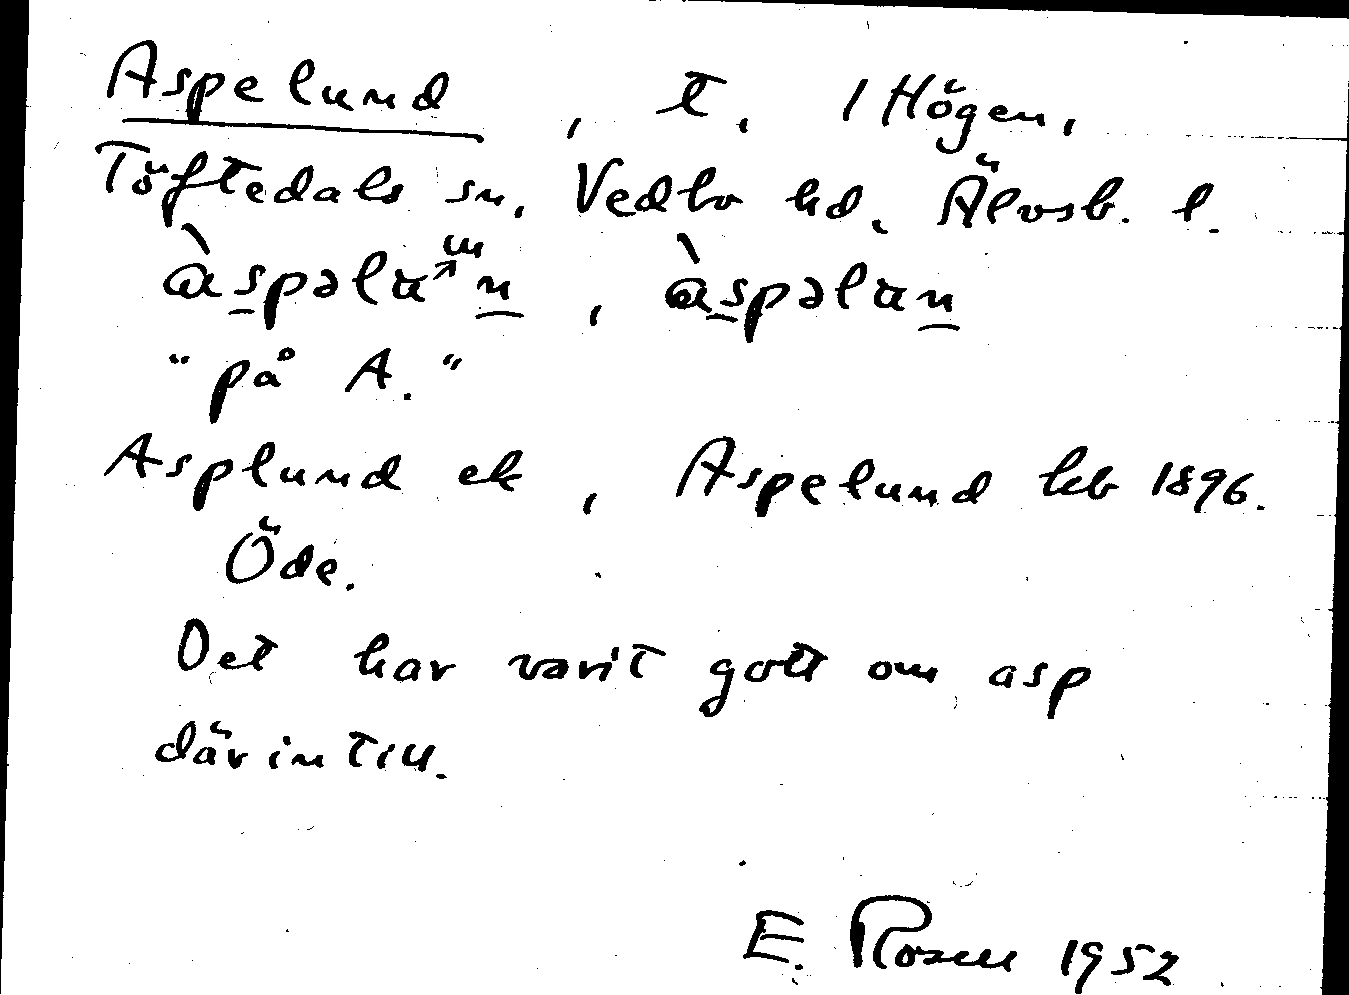 Aspelund, t. 1 Högen,
Töftedals sn. Vedbo hd. Älvsb. l.
àspəlun, àspəlun
"på A."
Asplund ek, Aspelund kb 1896.
Öde.
Det har varit gott om asp
därintill.
E. Rosell 1952